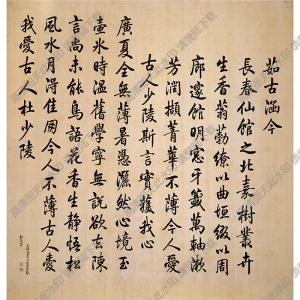 茹古涵今
長春仙館之北嘉樹叢卉
生香蓊葧繚以曲垣綴以周
廊邃館明窓牙籤萬軸漱
芳潤擷菁華不薄今人愛
古人少陵斯言實獲我心
廣夏全無薄暑憑灑然心境玉
壺氷時溫舊學寧無說欲去陳
言尚未能鳥語花香生靜悟松
風水月得佳朋今人不薄古人愛
我愛古人杜少陵